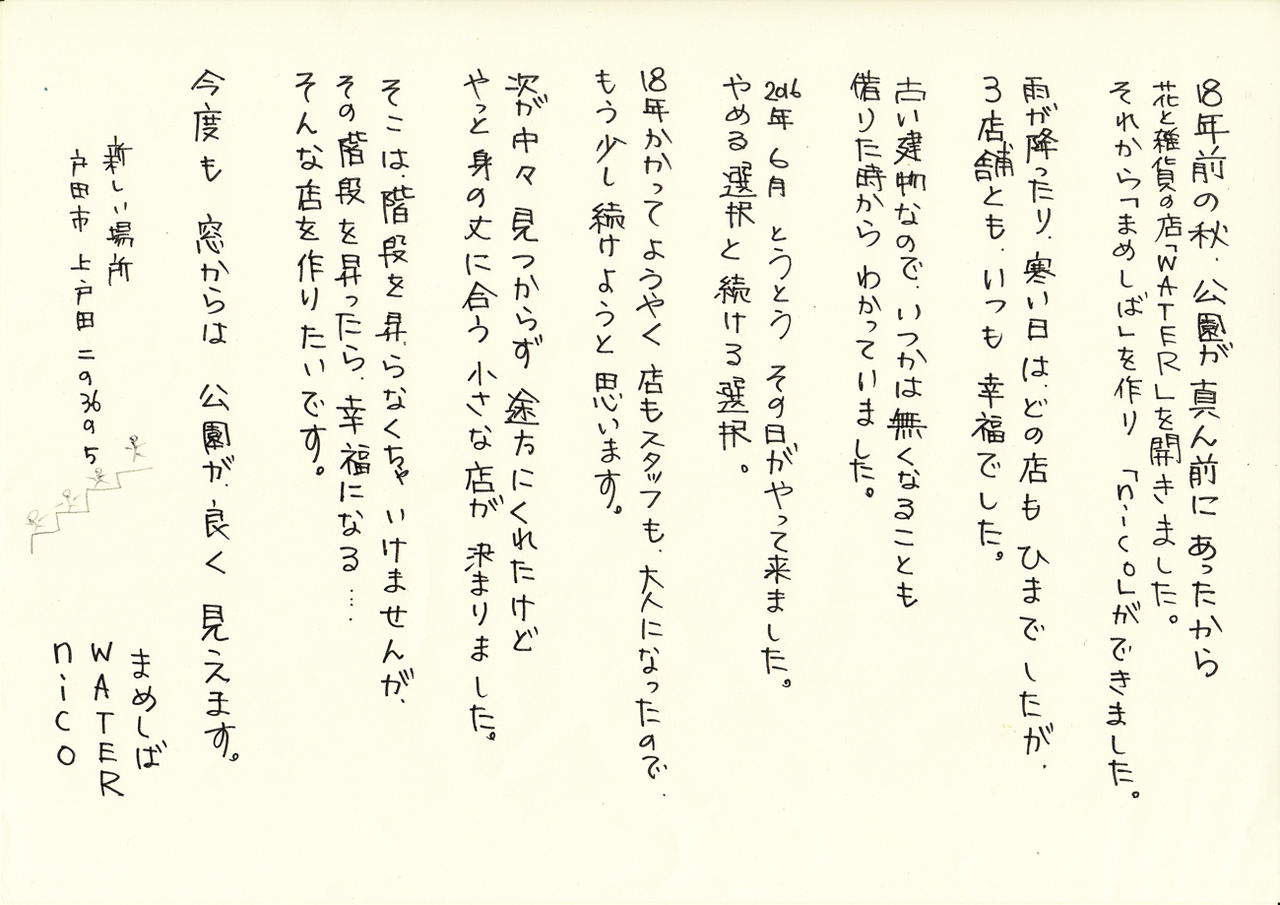 18年前の秋、公園が真ん前にあったから
花と雑貨の店「WATER」を開きました。
それから「まめしば」を作り 「nico」ができました。
雨が降ったり、寒い日は、どの店も ひまでしたが、
3店舗とも、いつも 幸福でした。
古い建物なので、いつかは無くなることも
借りた時から わかっていました。
2016年 6月 とうとう その日がやって来ました。
やめる選択と続ける選択。
18年かかってようやく 店もスタッフも、大人になったので、
もう少し続けようと思います。
次が中々 見つからず 途方にくれたけど
やっと身の丈に合う 小さな店が 決まりました。
そこは、階段を昇らなくちゃ いけませんが、
その階段を昇ったら、幸福になる……
そんな店を作りたいです。
今度も 窓からは 公園が、良く 見えます。
新しい場所
戸田市 上戸田 二の36の5
まめしば
WATER
nico